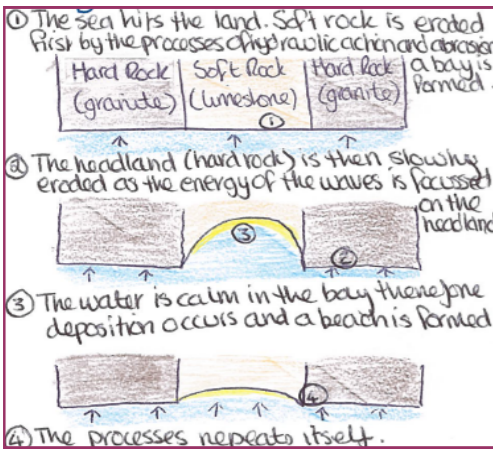 ① The sea hits the land. Soft rock is eroded
first by the processes of hydraulic action and abrasion
a bay is
formed.
Hard Rock
(granite)
Soft Rock
(limestone)
Hard Rock
(granite)
①
② The headland (hard rock) is then slowly
eroded as the energy of the waves is focussed
on the
headland
③
②
③ The water is calm in the bay therefore
deposition occurs and a beach is formed
④
④ The processes repeats itself.